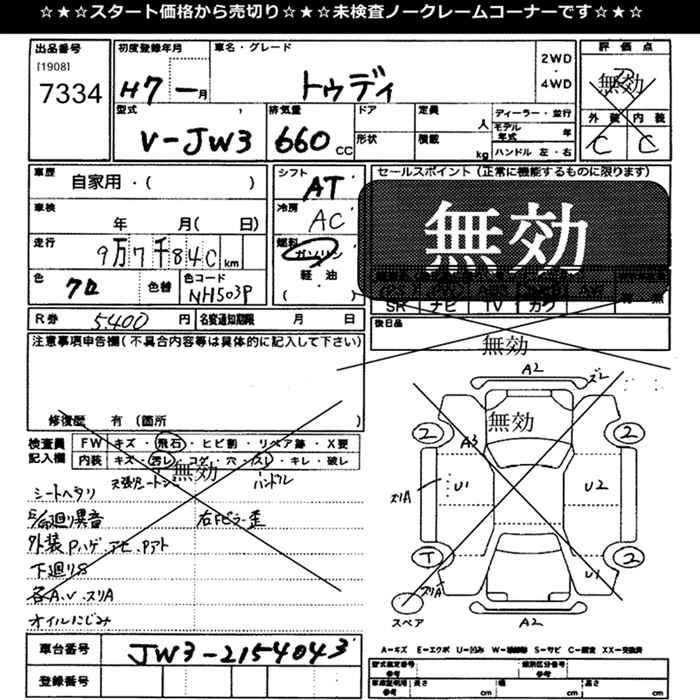 ☆★☆★スタート価格から売切り☆★☆★未検査ノークレームコーナーです☆★☆★
出品番号 初度登録年月 車名・グレード 2WD 評価点
[1908]
7334 H7 ー月 トゥディ 4WD 無効
型式 排気量 ドア 定員 人 ディーラー・並行 外装 内装
V-JW3 660 CC 形状 積載 kg モデル年式 年 C C
ハンドル 左・右
車歴 自家用・( ) シフト AT セールスポイント (正常に機能するものに限ります)
車検 年 月( 日) 冷房 AC 無効
走行 9万7千84C km 燃料 ガソリン
色 クロ 色替 色コード NH503P 軽・油
( )
SR ナビ TV カワ
R券 5,400 円 名変通知期限 月 日 後日品
注意事項申告欄(不具合内容等は具体的に記入して下さい) 無効
修復歴 有 (箇所 )
検査員 FW キズ・飛石・ヒビ割・リペア跡・X要
記入欄 内装 キズ・汚レ・コゲ・穴・スレ・キレ・破レ
無効
天張り ハンドル
シートヘタリ
廻り異音 右Fピラー歪
外装Pハゲ.アセ.Pアト
下廻りS
各A.U.スリA
オイルにじみ
車台番号 JW3-2154043
登録番号
A2
ズレ
無効
2 2
A3
スリA U1 U2
T 2
スリA U1
スペア A2
A=キズ E=エクボ U=凹み W=補修跡 S=サビ C=腐食 XX=交換済
型式指定番号 類別区分番号
参考 参考
車庫証明用 長さ 幅 高さ
参考 cm cm cm